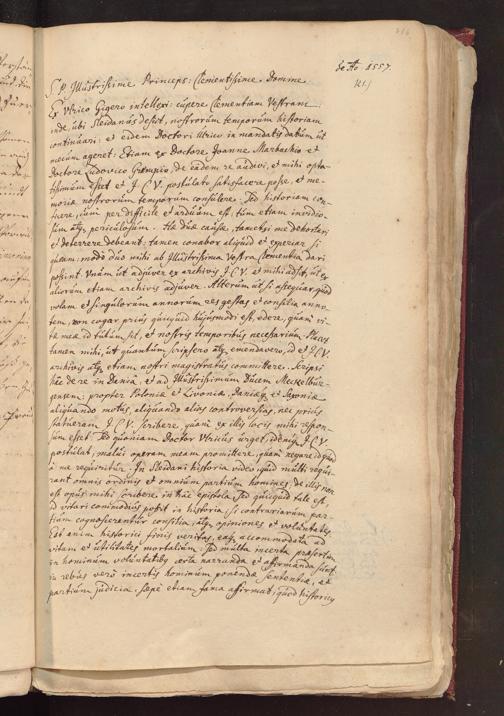 de Ao 1557.
S. P. Illustrissime Princeps: Clementissime Domine
Ex Ulrico Gigero intellexi: cupere Clementiam Vestram
inde, ubi Sleidanus desijt, nostrorum temporum historiam
continuari: et eidem Doctori Ulrico in mandatis datum ut
mecum ageret: Etiam ex Doctore Joanne Marbachio et
Doctore Ludovico Grempio, de eadem re audivi, et mihi opta-
tissimum esset et J. C. V. postulato satisfacere posse, et me-
moriae nostrorum temporum consulere. Sed historiam con-
ticere, cum per difficile et arduum est, tum etiam invidio-
sum atq. periculosum. Hae duae causae, tametsi me dehortari
et deterrere debeant: tamen conabor aliquid et experiar si
quidem modo duo mihi ab Illustrissima Vestra Clementia dari
possint. Unum ut adjuver ex archivis J. C. V. et mihi adsit, ut ex
aliorum etiam archivis adjuver. Alterum ut si assequar, quod
volam et singulorum annorum res gestas et consilia anno-
tem, non cogar prius quicquid hujusmodi est, edere, quam vi-
tae meae id tutum sit, et nostris temporibus necessarium. Placet
tamen mihi, ut quantum scripsero atq. emendavero, id et J. C. V.
archivis atq. etiam nostri magistratus committere. Scripsi
hac de re in Dania, et ad Illustrissimum Ducem Meckelbur-
gensem: propter Poloniae et Livoniae, Daniaeq. et Saxoniae
aliquando motus, aliquando alios controversias, nec prius
statueram J. C. V. scribere, quam ex illis locis mihi respon-
sum esset. Sed quoniam Doctor Ulricus urget, idemq. J. C. V.
postulat, malui operam meam promittere, quam negare id quod
a me requiritur. In Sleidani historia video, quid multi requi-
rant omnis ordinis et omnium partium homines, de illis non
est opus mihi scribere, in hac epistola. Sed quicquid tale est,
id vitari commodius possit in historia, si contrariarum par-
tium cognoscerentur consilia, atq. opiniones et voluntates.
Est enim historici finis veritas, eaq. accommodata ad
vitam et utilitates mortalium. Sed multa incerta praesertim
in hominum voluntatibq. certa narranda et affirmanda sunt
in rebus vero incertis hominum ponendae sententiae, et
partium judicia. Saepe etiam fama affirmat, quod historicus